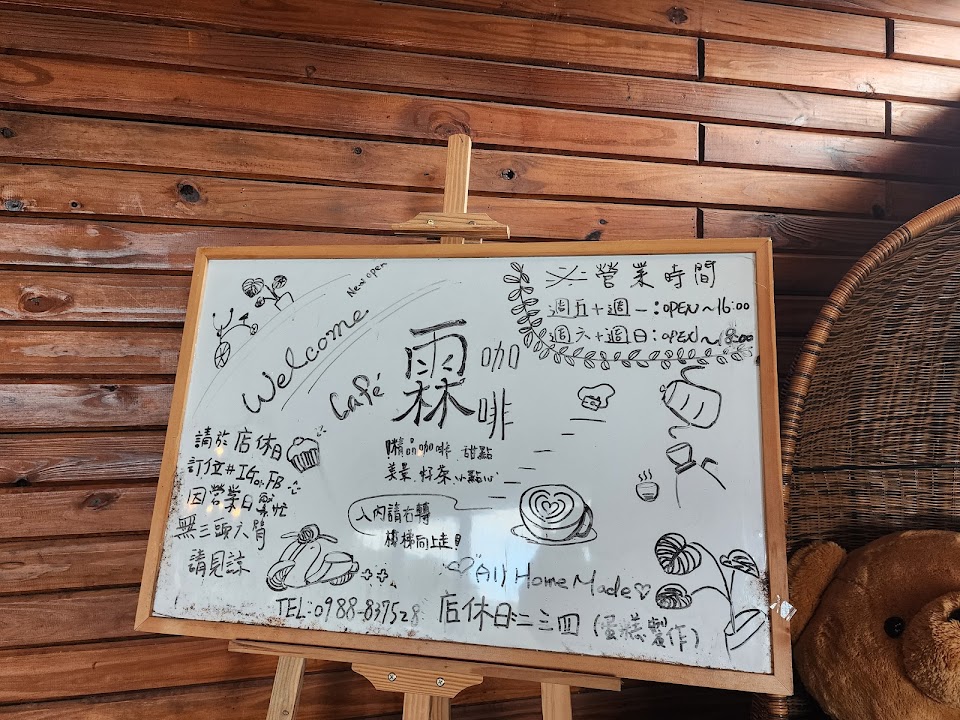 New open
Welcome
Café
霖
咖啡
※營業時間
週五+週一:OPEN~16:00
週六+週日:OPEN~18:00
精品咖啡.甜點
美景.好茶小點心
入內請右轉
樓梯向上走!
請於店休日
訂位#IG or FB
因營業日繁忙
無三頭六臂
請見諒
All Home Made
TEL:0988-837528
店休日:二三四(蛋糕製作)